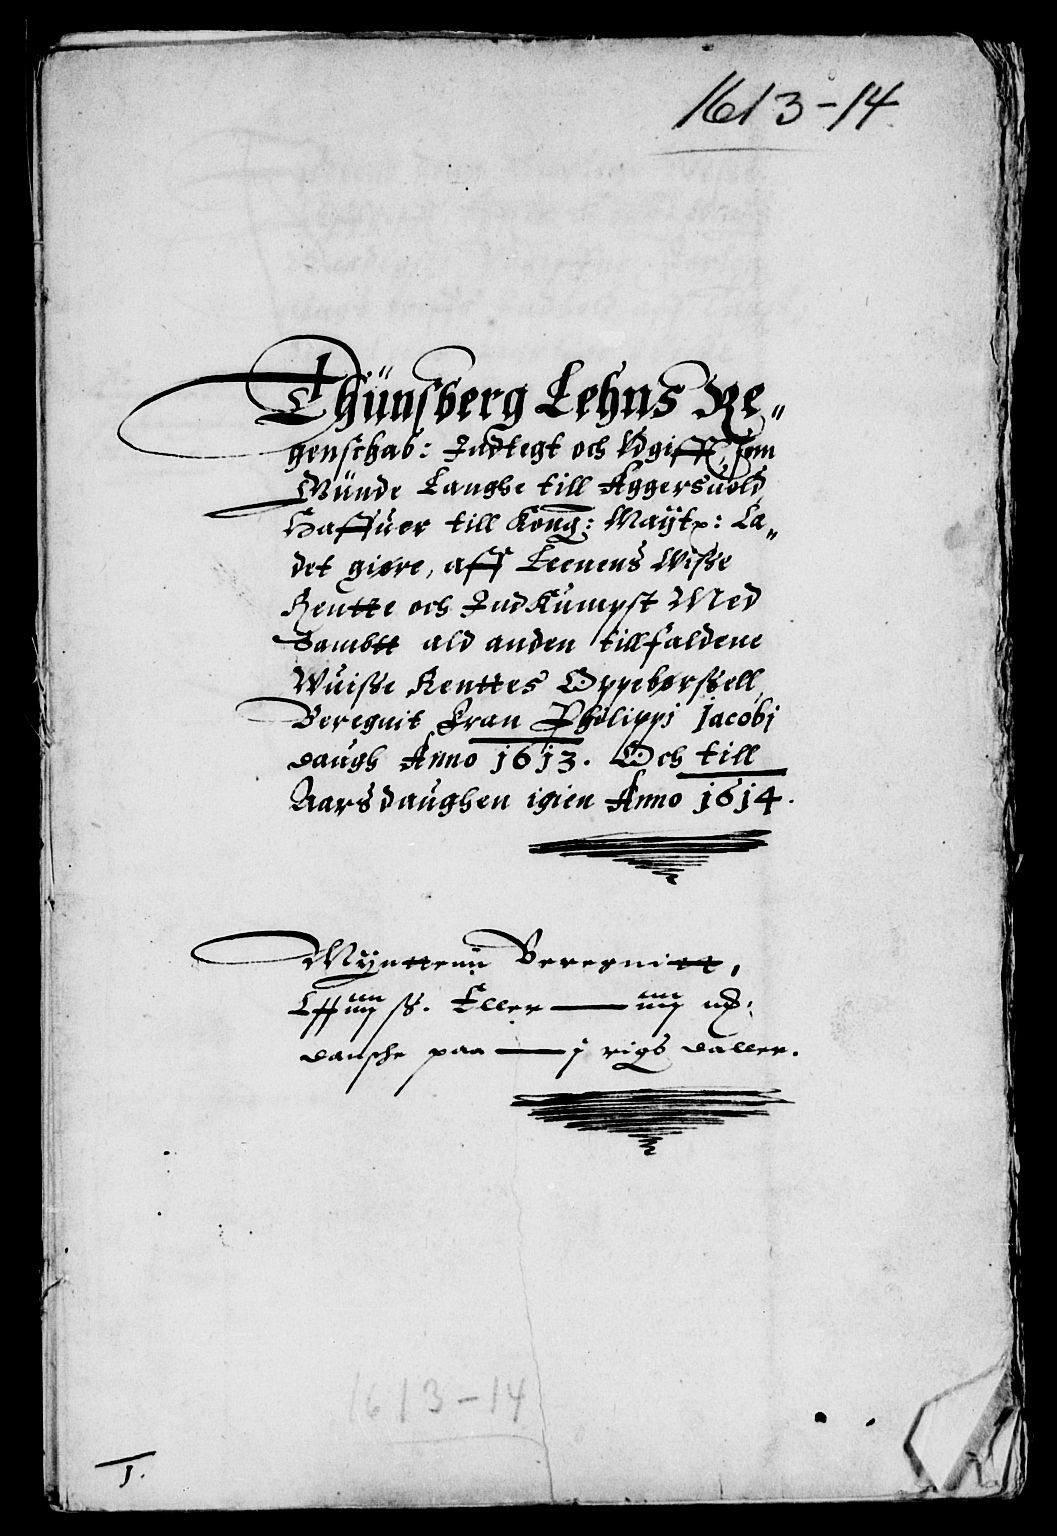 1613-14
Thünsberg Lehns Re„
genschab: Indtegt och Vdgifft, som
Münde Langhe till Aggersuold
Haffuer till Kong: Maytz: La„
det giøre, aff Leenens Wisse
Rentte och Indkumpst Med
Sambtt ald anden tillfaldene
Wuisse Renttes Oppebørssell,
Beregnit Fran Philippi Jacobi
daugh Anno 1613. Och till
Aarsdaughen igien Anno 1614.
Mÿntten Beregnitt,
ß. Eller
dansche paa — j rigs daller.
1613-14
1.